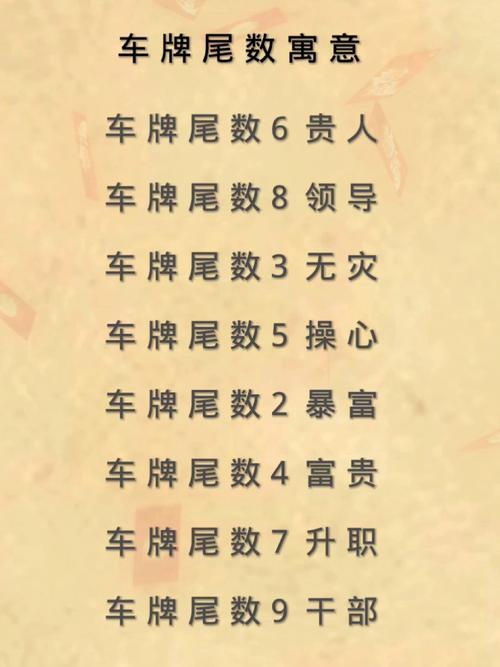 车牌尾数寓意
车牌尾数6 贵人
车牌尾数8 领导
车牌尾数3 无灾
车牌尾数5 操心
车牌尾数2 暴富
车牌尾数4 富贵
车牌尾数7 升职
车牌尾数9 干部